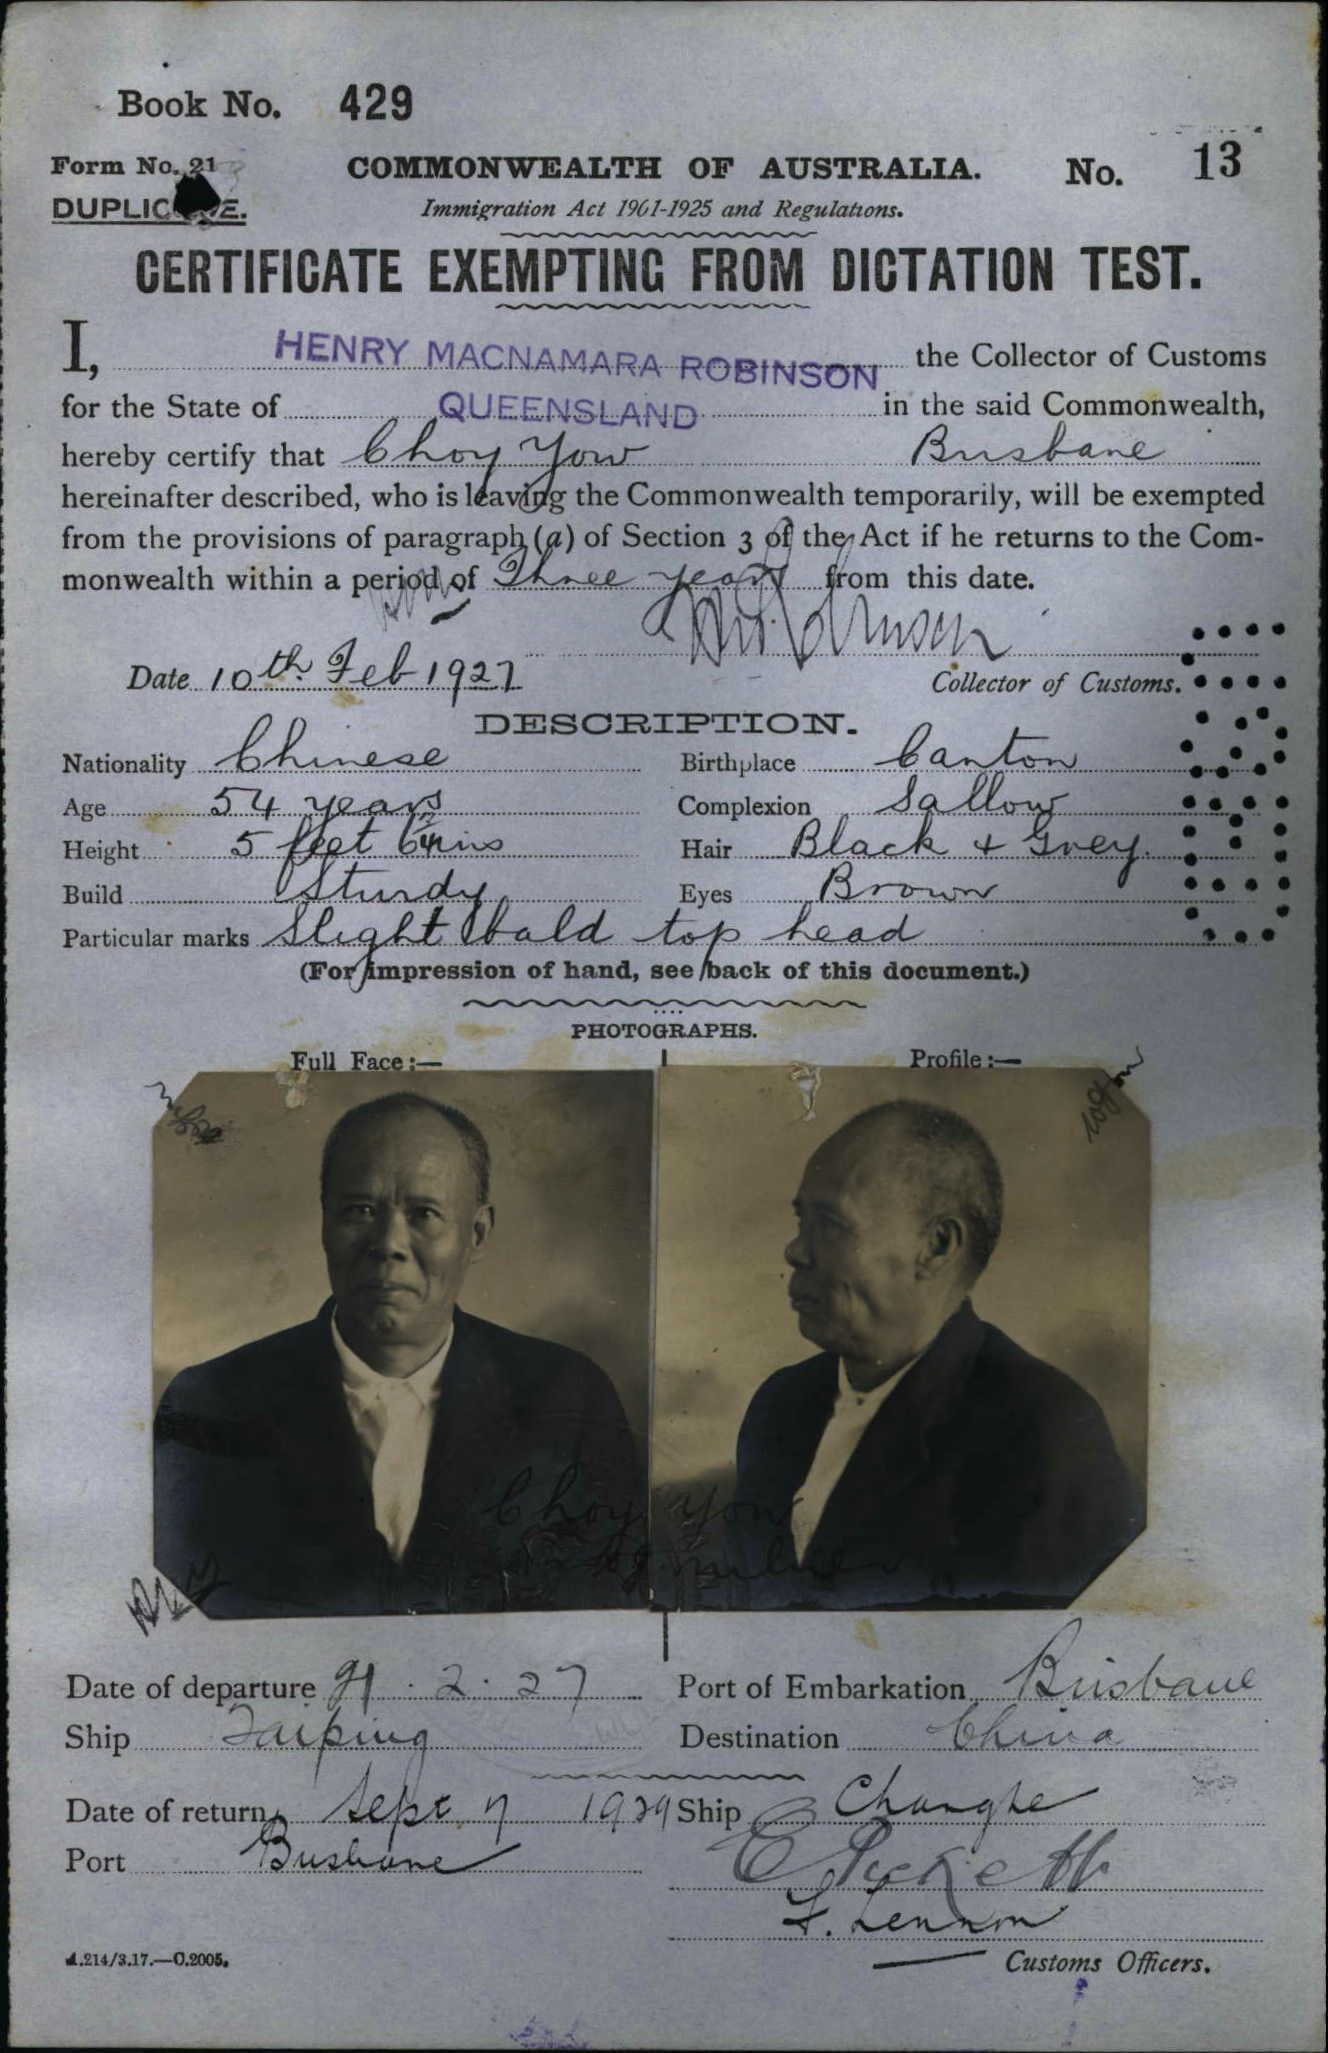 Book No. 429
Form No. 21
COMMONWEALTH OF AUSTRALIA.
No. 13
DUPLICATE.
Immigration Act 1901-1925 and Regulations.
CERTIFICATE EXEMPTING FROM DICTATION TEST.
I, HENRY MACNAMARA ROBINSON the Collector of Customs
for the State of QUEENSLAND in the said Commonwealth,
hereby certify that Choy Yow Brisbane
hereinafter described, who is leaving the Commonwealth temporarily, will be exempted
from the provisions of paragraph (a) of Section 3 of the Act if he returns to the Com-
monwealth within a period of Three years from this date.
Date 10th Feb 1927
Collector of Customs.
DESCRIPTION.
Nationality Chinese Birthplace Canton
Age 54 years Complexion Sallow
Height 5 feet ins Hair Black + Grey.
Build Sturdy Eyes Brown
Particular marks Slight bald top head
(For impression of hand, see back of this document.)
PHOTOGRAPHS.
Full Face:— Profile:—
Choy Yow
Date of departure 2.27 Port of Embarkation Brisbane
Ship Taiping Destination China
Date of return Sept 7 1929 Ship Changte
Port Brisbane
F. Lennon
A.214/3.17.—C.2005. Customs Officers.